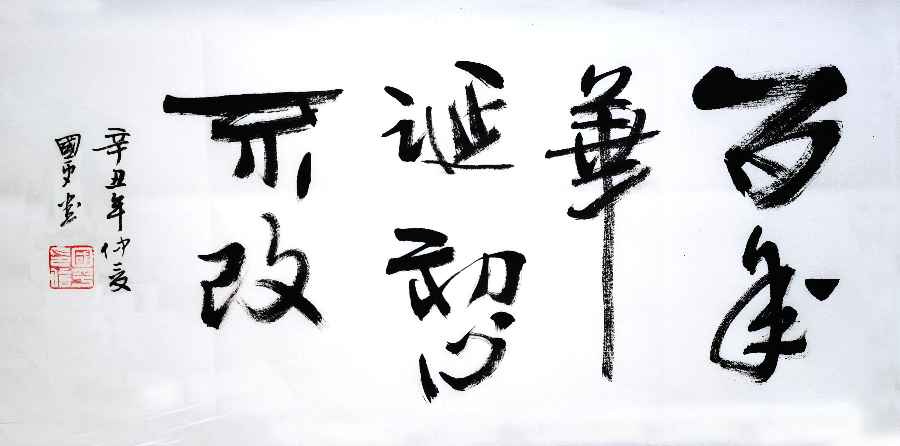 百年
華
誕初心
不改
辛丑年仲夏
國勇書